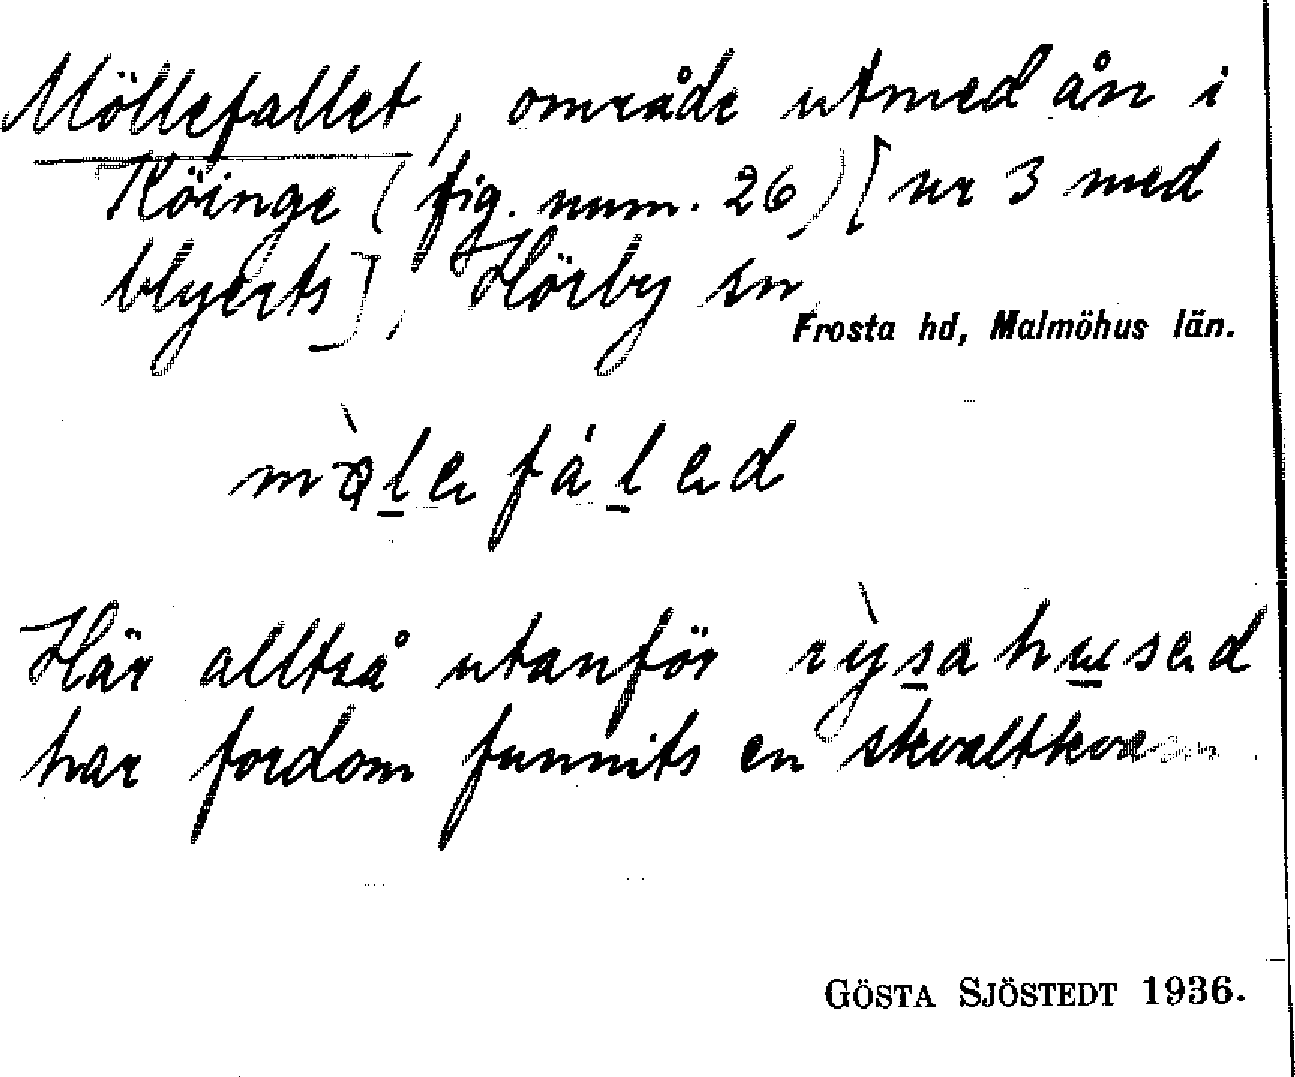 Möllefallet, område utmed ån i
Köinge (fig. num. 26) [nr 3 med
blyerts], Hörby sn
Frosta hd, Malmöhus län.
Här alltså utanför
har fordom funnits en skvaltkvarn.
GÖSTA SJÖSTEDT 1936.